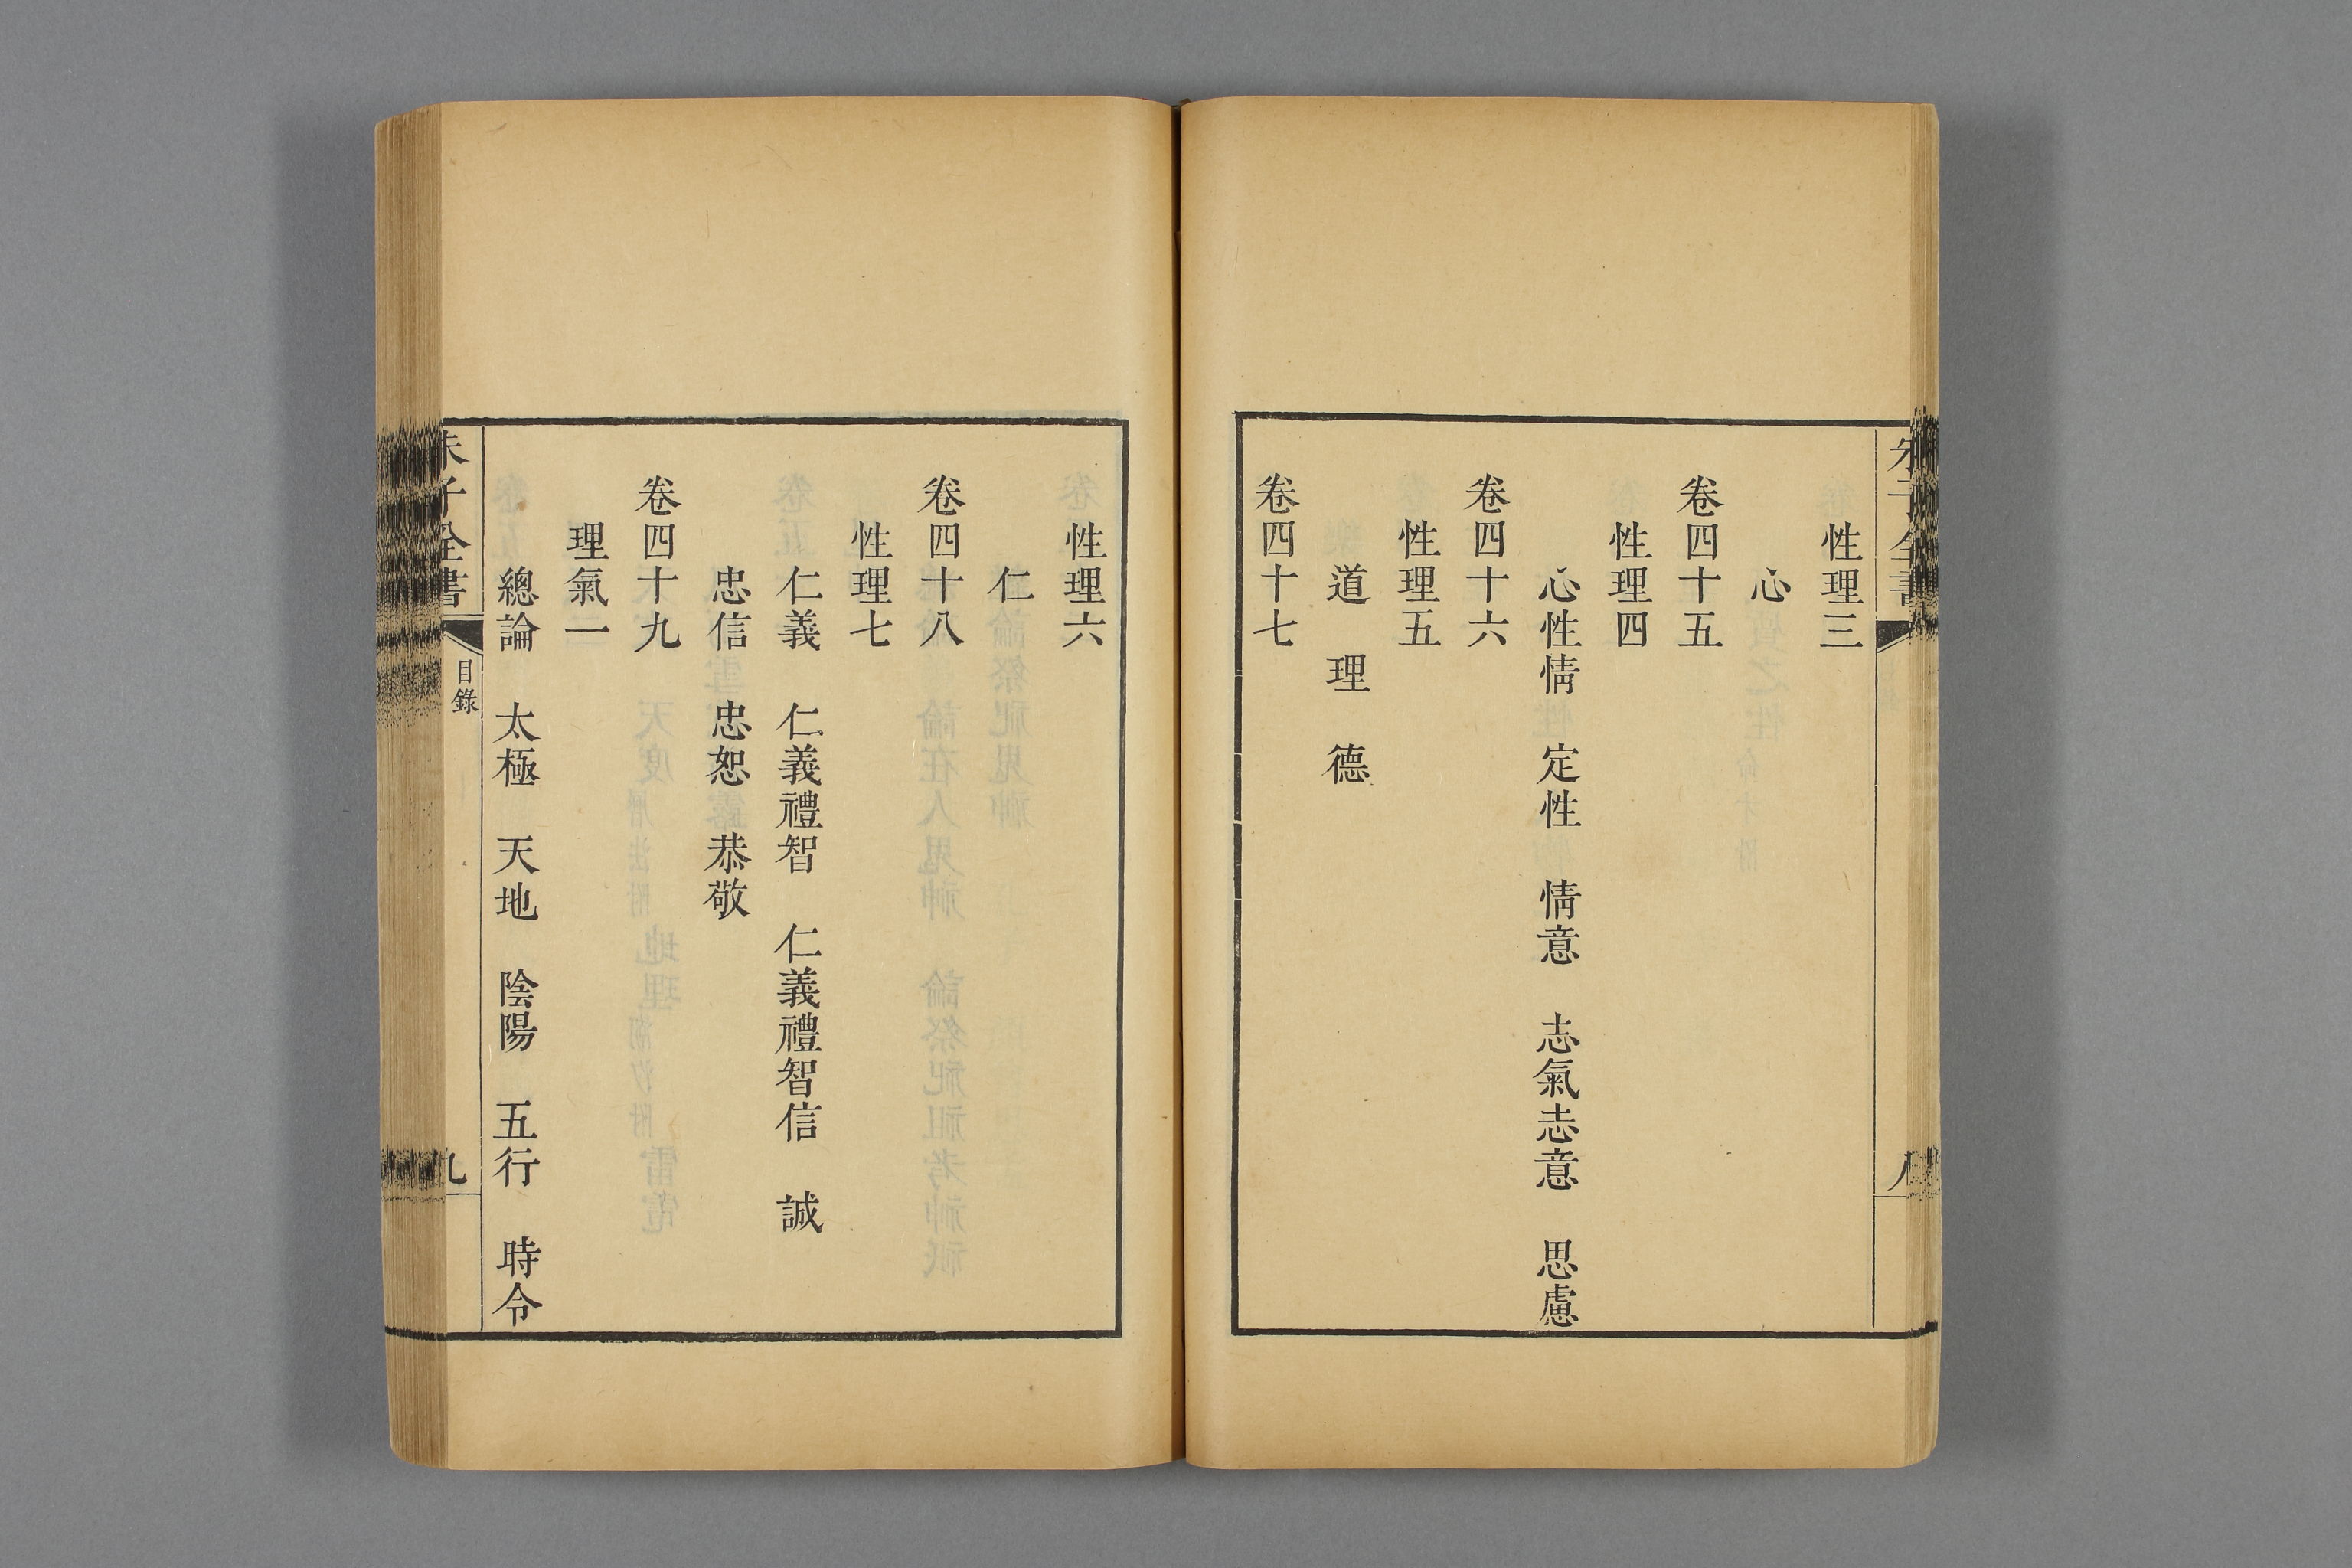 朱子全書
八
性理三
心
卷四十五
性理四
心性情　定性　情意　志氣志意　思慮
卷四十六
性理五
道　理　德
卷四十七
性理六
仁
卷四十八
性理七
仁義　仁義禮智　仁義禮智信　誠
忠信　忠恕　恭敬
卷四十九
理氣一
總論　太極　天地　陰陽　五行　時令
朱子全書
目錄
九